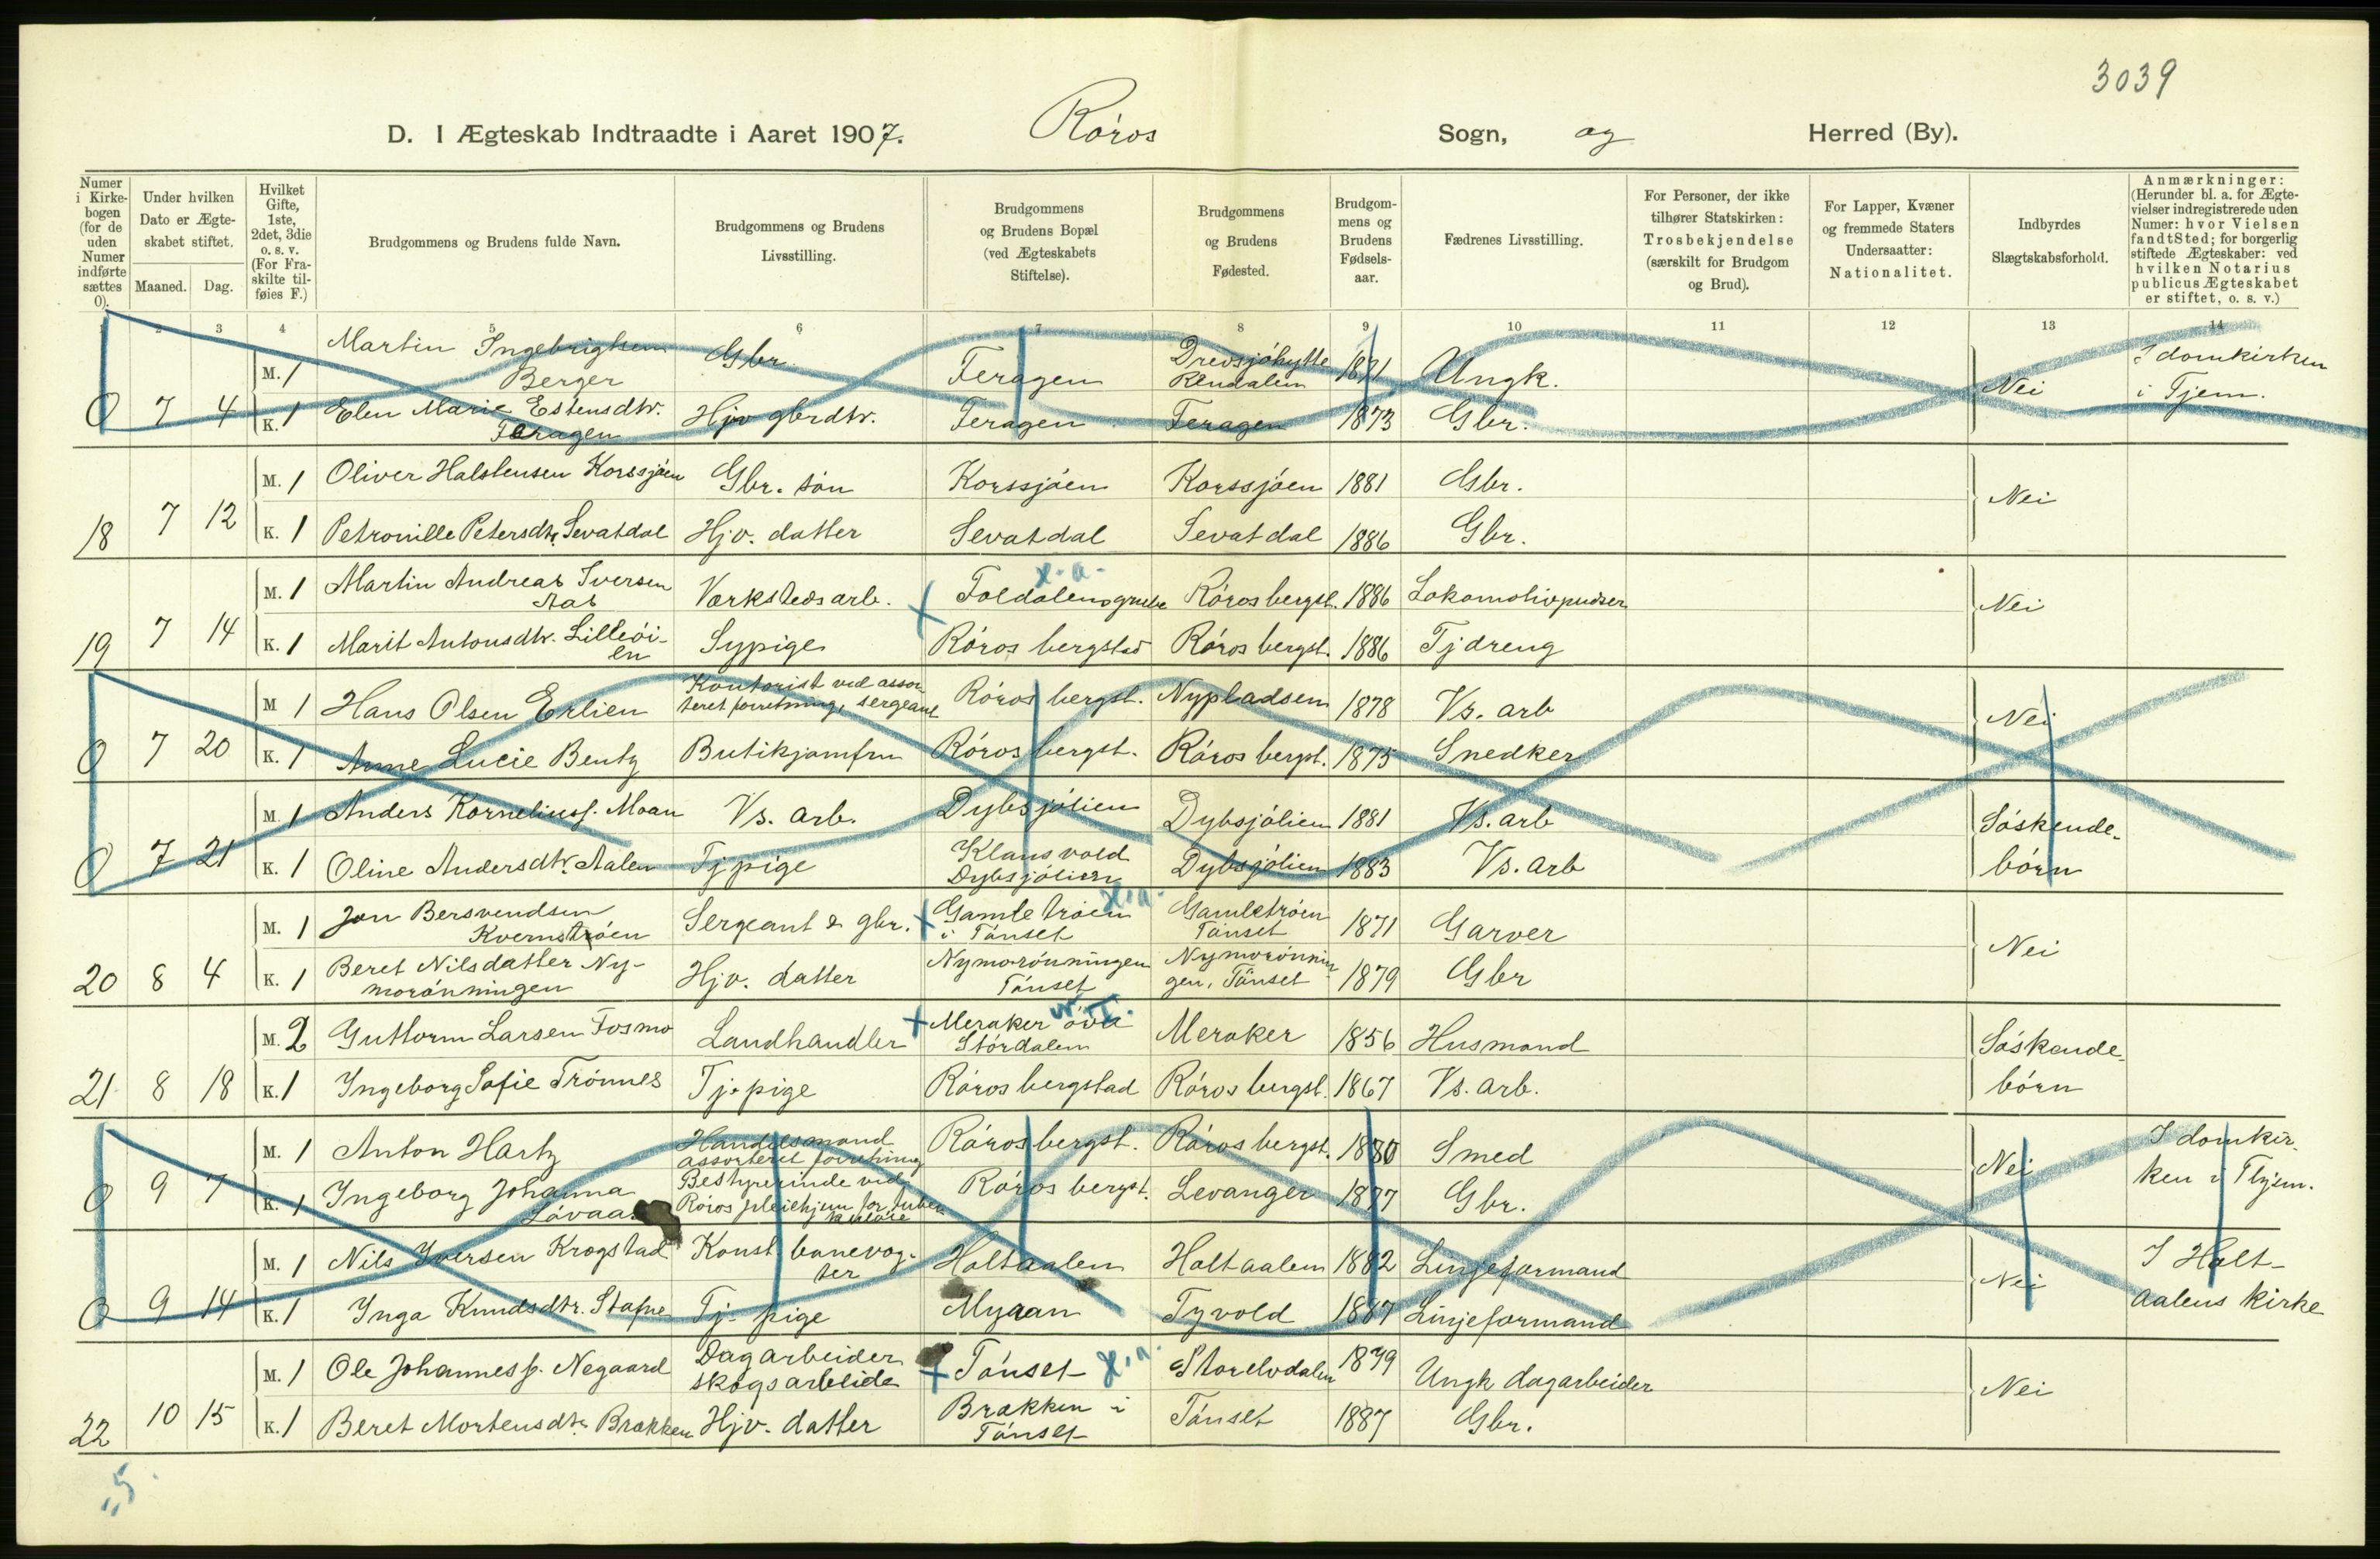 3039
D. I Ægteskab Indtraadte i Aaret 1907. Røros Sogn, og Herred (By).
Numer i Kirkebogen (for de uden Numer indførte sættes 0).
Under hvilken Dato er Ægteskabet stiftet.
Maaned. Dag.
Hvilket Gifte, 1ste, 2det, 3die o. s. v. (For Fraskilte tilføies F.)
Brudgommens og Brudens fulde Navn.
Brudgommens og Brudens Livsstilling.
Brudgommens og Brudens Bopæl (ved Ægteskabets Stiftelse).
Brudgommens og Brudens Fødested.
Brudgommens og Brudens Fødselsaar.
Fædrenes Livsstilling.
For Personer, der ikke tilhører Statskirken: Trosbekjendelse (særskilt for Brudgom og Brud).
For Lapper, Kvæner og fremmede Staters Undersaatter: Nationalitet.
Indbyrdes Slægtskabsforhold.
Anmærkninger: (Herunder bl. a. for Ægtevielser indregistrerede uden Numer: hvor Vielsen fandt Sted; for borgerlig stiftede Ægteskaber: ved hvilken Notarius publicus Ægteskabet er stiftet, o. s. v.)
1 2 3 4 5 6 7 8 9 10 11 12 13 14
M. 1 Martin Ingebrigtsen Berger Gbr. Feragen Drevsjøhytte Rendalen 1871 Ungk. Nei I domkirken i Tjem.
0 7 4 K. 1 Elen Marie Estensdtr. Feragen Hjv gbrdtr. Feragen Feragen 1873 Gbr.
M. 1 Oliver Halstensen Korssjøen Gbr. søn Korssjøen Korssjøen 1881 Gbr. Nei
18 7 12 K. 1 Petronille Petersdtr. Sevatdal Hjv. datter Sevatdal Sevatdal 1886 Gbr.
M. 1 Martin Andreas Iversen Aas Værkstedsarb. Foldalens grube Røros bergst. 1886 Lokomotivpudser Nei
19 7 14 K. 1 Marit Antonsdtr. Lilleøien Sypige Røros bergstad Røros bergst. 1886 Tjdreng
M 1 Hans Olsen Erlien Kontorist ved assorteret forretning, sergeant Røros bergst. Nypladsen 1878 Vs. arb Nei
0 7 20 K. 1 Anne Lucie Bentz Butikjomfru Røros bergst. Røros bergst. 1875 Snedker
M. 1 Anders Korneliuss. Moan Vs. arb. Dybsjølien Dybsjølien 1881 Vs. arb Søskendebørn
0 7 21 K. 1 Oline Andersdtr. Aalen Tjpige Klausvold Dybsjølien Dybsjølien 1883 Vs. arb
M. 1 Jon Bersvendsen Kvernstrøen Sergeant & gbr. Gamletrøen i Tønset Gamletrøen Tønset 1871 Garver Nei
20 8 4 K. 1 Beret Nilsdatter Nymorønningen Hjv. datter Nymorønningen Tønset Nymorønningen, Tønset 1879 Gbr
M. 2 Guttorm Larsen Fosmo Landhandler Meraker øvre Størdalen Meraker 1856 Husmand Søskendebørn
21 8 18 K. 1 Ingeborg Sofie Trønnes Tj. pige Røros bergstad Røros bergst. 1867 Vs. arb.
M. 1 Anton Hartz Handelsmand assorteret forretning Røros bergst. Røros bergst. 1880 Smed Nei I domkirken i Thjem.
0 9 7 K. 1 Ingeborg Johanna Løvaas Bestyrerinde ved Røros pleiehjem for tuberkuløse Røros bergst. Levanger 1877 Gbr.
M. 1 Nils Iversen Krogstad Konst. banevogter Holtaalen Holtaalen 1882 Linjeformand Nei I Holtaalens kirke
0 9 14 K. 1 Inga Knudsdtr. Stafne Tj. pige Myraan Tyvold 1887 Linjeformand
M. 1 Ole Johanness. Negaard Dagarbeider skogsarbeide Tønset Storelvdalen 1879 Ungk dagarbeider Nei
22 10 15 K. 1 Beret Mortensdtr. Brækken Hjv. datter Brækken i Tønset Tønset 1887 Gbr.